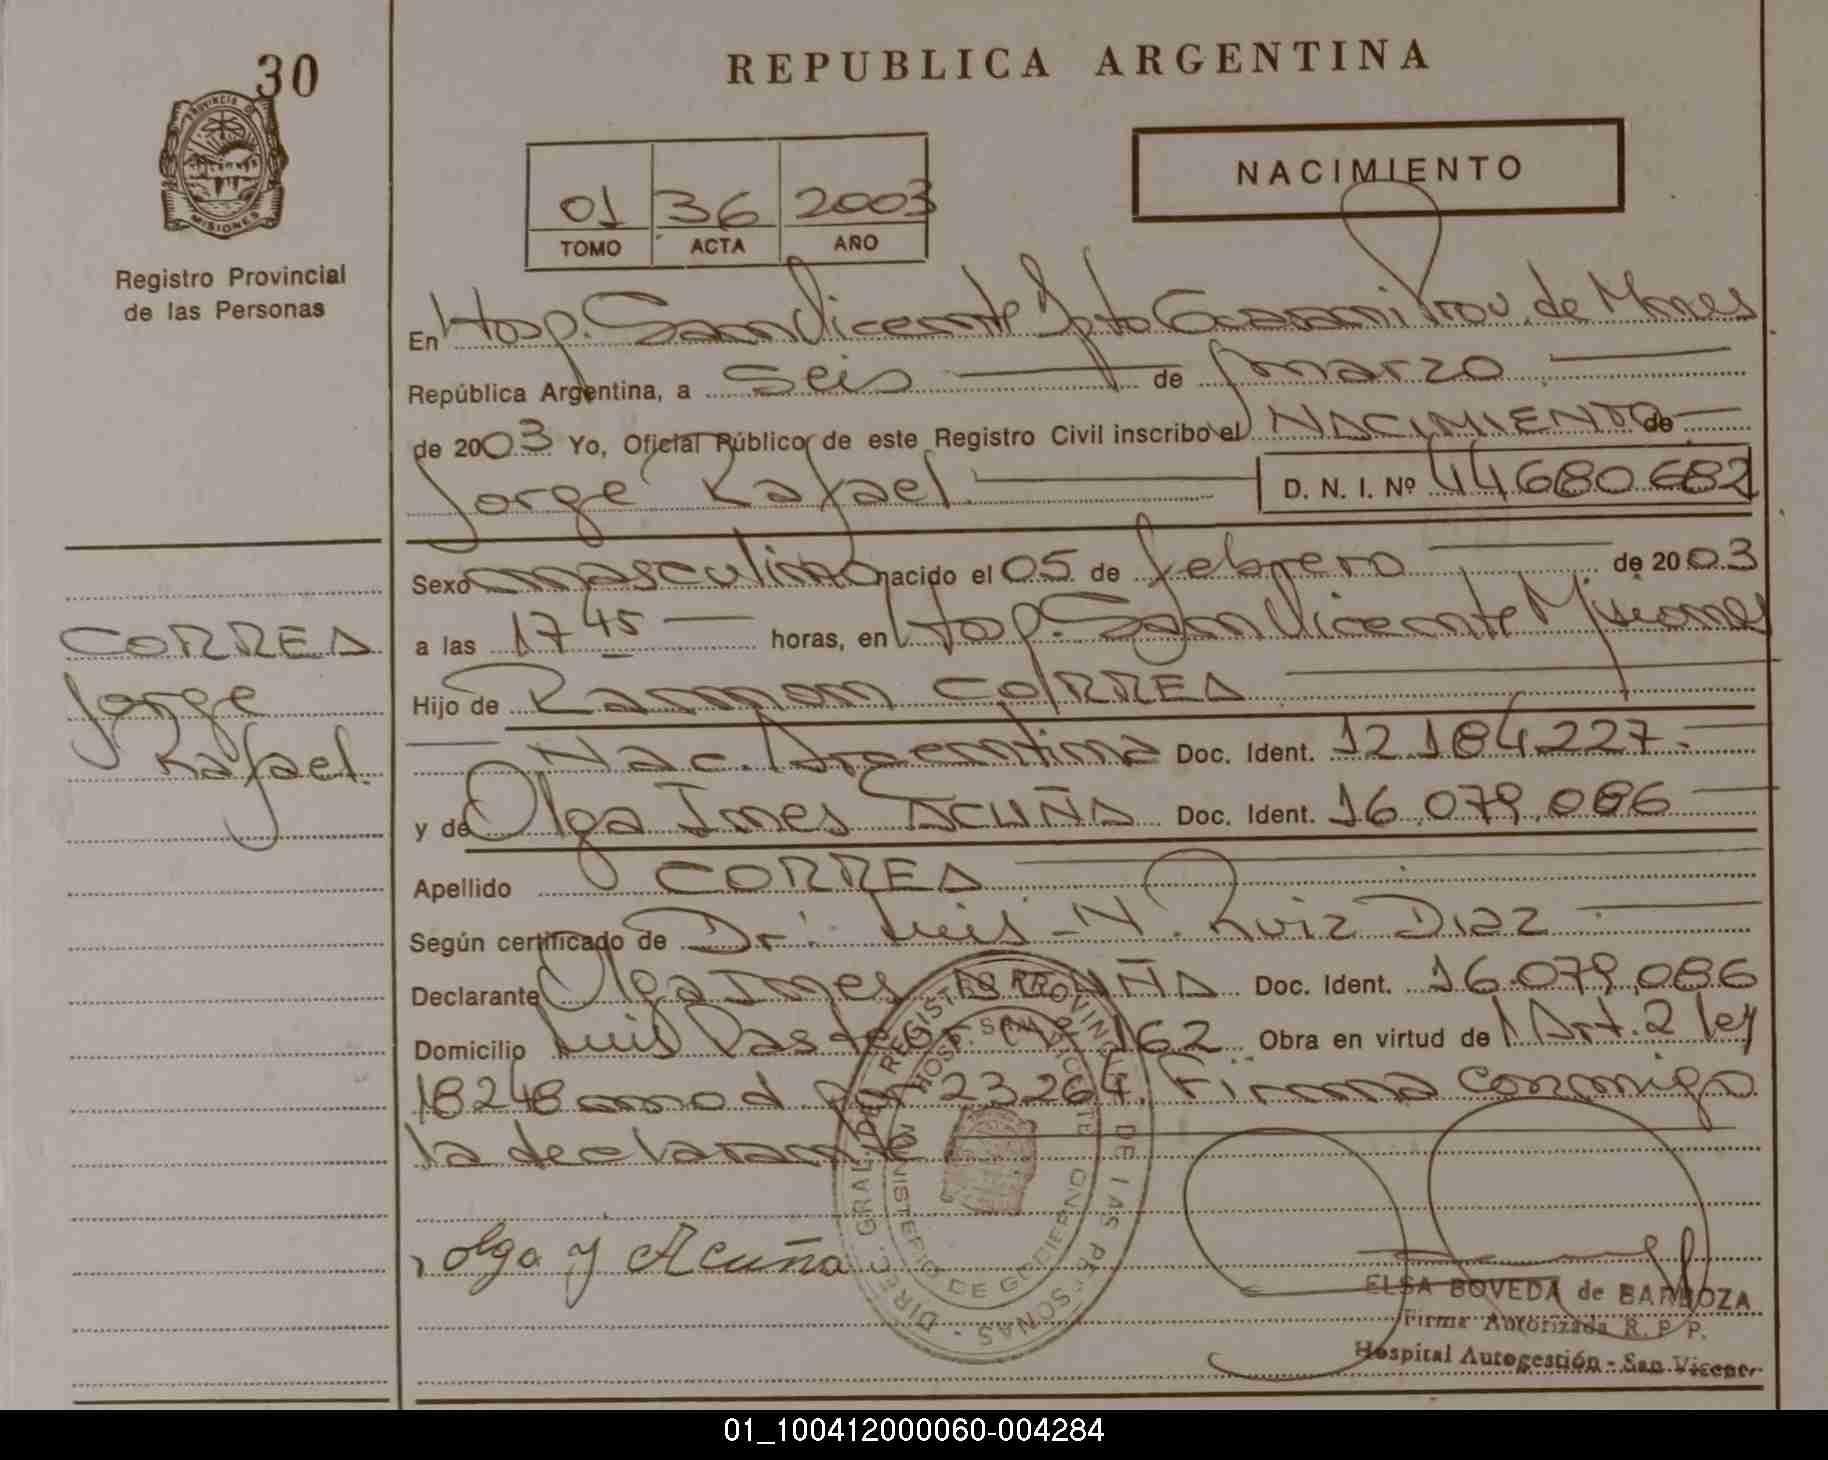 30
REPUBLICA ARGENTINA
PROVINCIA DE
MISIONES
Registro Provincial
de las Personas
01 36 2003
TOMO ACTA AÑO
NACIMIENTO
En Hosp. San Vicente Dpto Guarani Prov. de Mnes
República Argentina, a seis de marzo
de 2003 Yo, Oficial Público de este Registro Civil inscribo el NACIMIENTO de
Jorge Rafael D. N. I. Nº 44680682
Sexo masculino nacido el 05 de febrero de 2003
a las 17 45 horas, en Hosp. San Vicente Misiones
Hijo de Ramon CORREA
Nac. Argentina Doc. Ident. 12.184.227
y de Olga Ines ACUÑA Doc. Ident. 16.079.086
Apellido CORREA
Según certificado de Dr. Luis N. Ruiz Diaz
Declarante Olga Ines ACUÑA Doc. Ident. 16.079.086
Domicilio Luis Pasteur Nº 162 Obra en virtud de Art. 2 ley
18248 mod por 23264. Firma conmigo
la declarante
CORREA
Jorge
Rafael
Olga Y Acuña
DIREC. GRAL. DEL REGISTRO PROVINCIAL DE LAS PERSONAS
HOSP. SAN VICENTE
MINISTERIO DE GOBIERNO
ELSA BOVEDA de BARBOZA
Firma Autorizada R. P. P.
Hospital Autogestión - San Vicente
01_100412000060-004284